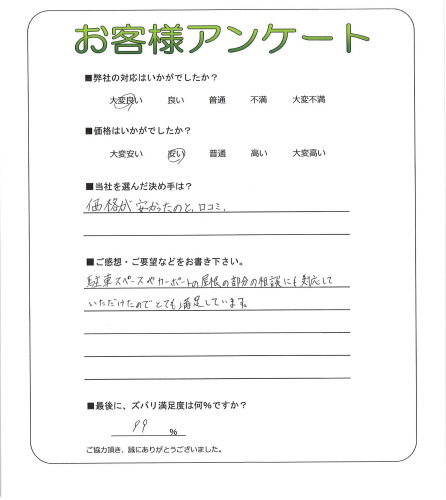 お客様アンケート
■弊社の対応はいかがでしたか?
大変良い 良い 普通 不満 大変不満
■価格はいかがでしたか?
大変安い 安い 普通 高い 大変高い
■当社を選んだ決め手は?
価格が安かったのと、口コミ、
■ご感想・ご要望などをお書き下さい。
駐車スペースやカーポートの屋根の部分の相談にも対応して
いただけたのでとても満足しています。
■最後に、ズバリ満足度は何%ですか?
99 %
ご協力頂き、誠にありがとうございました。